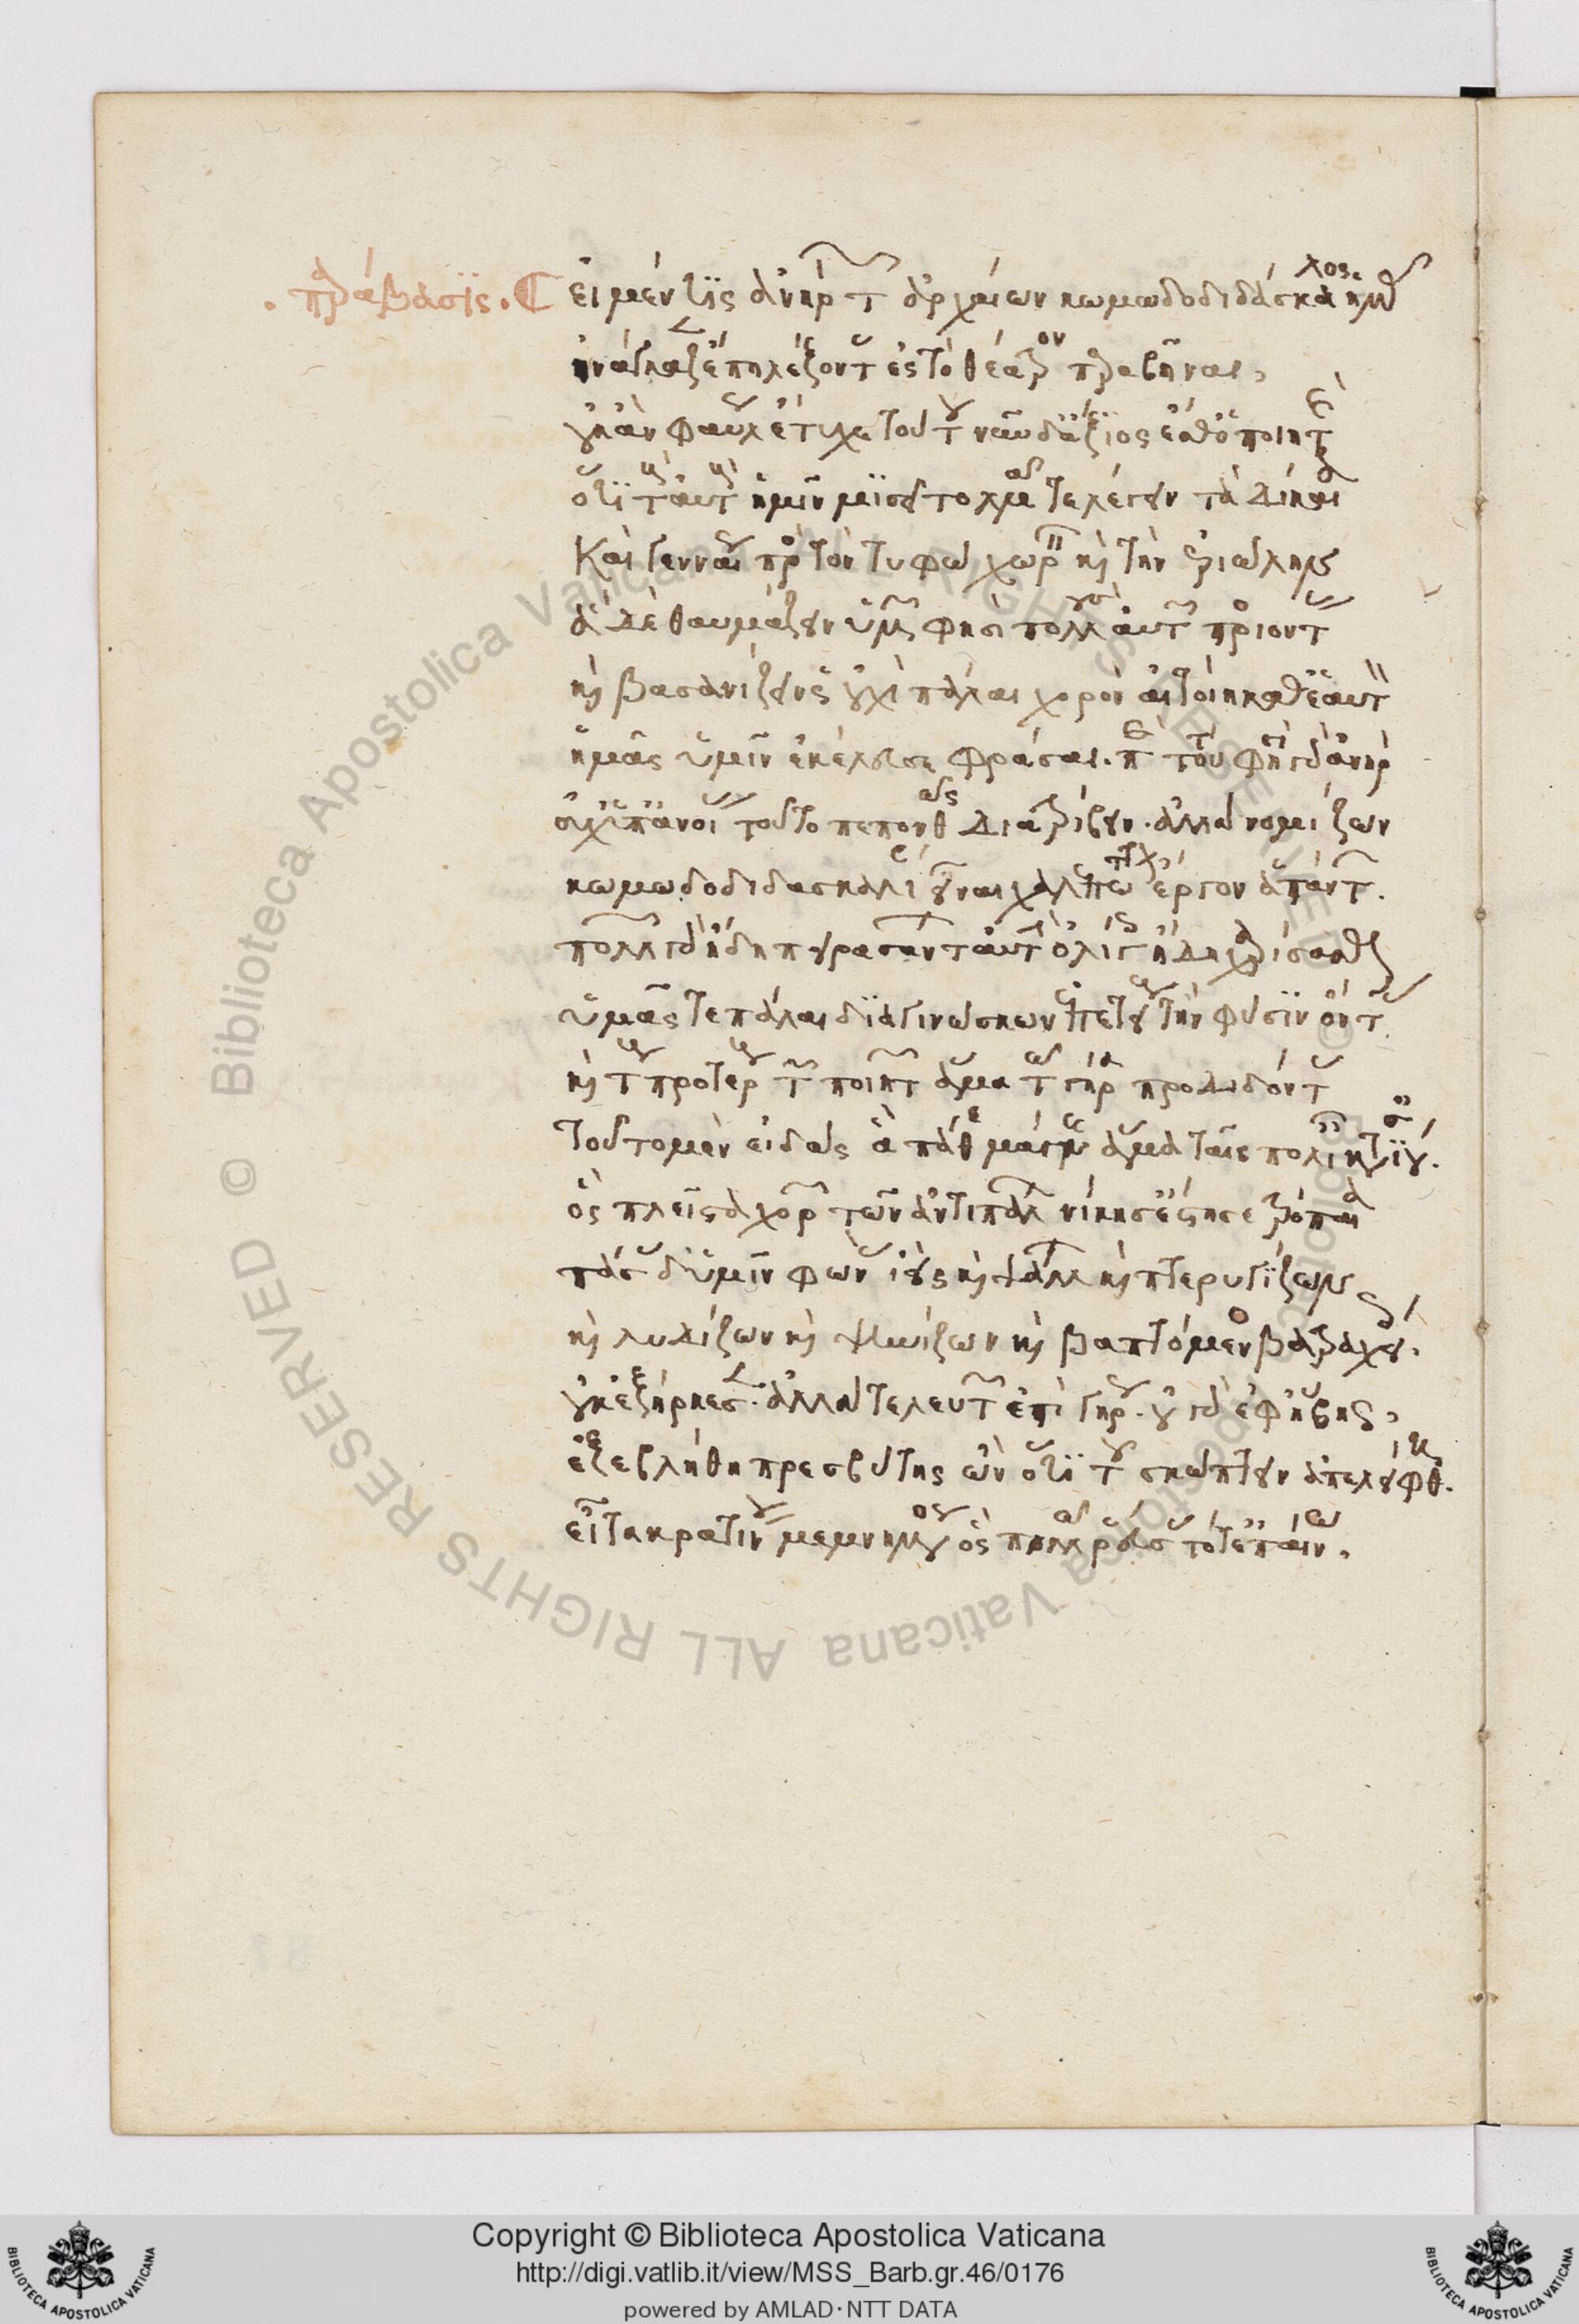 παράβασις.
εἰ μέν τις ἀνὴρ τῶν ἀρχαίων κωμωδοδιδάσκαλος ἡμᾶς
ἠνάγκαζεν ἔπη λέξοντας ἐς τὸ θέατρον παραβῆναι,
οὐκ ἂν φαύλως ἔτυχε τούτου νῦν δ' ἄξιος ἐσθ' ὁ ποιητὴς
ὅτι τοὺς αὐτοὺς ἡμῖν μισεῖ τολμᾶ τε λέγειν τὰ δίκαια
καὶ γενναίως πρὸς τὸν τυφῶ χωρεῖ καὶ τὴν ἐριώλην
ἃ δὲ θαυμάζειν ὑμῶν φησι πολλοὺς αὐτῶ προσιόντας
καὶ βασανίζειν ὡς οὐχὶ πάλαι χορὸν αἰτοίη καθ' ἑαυτὸν
ἡμᾶς ὑμῖν ἐκέλευσε φράσαι. περὶ τούτου φησὶ γὰρ ἀνὴρ
οὐχ ὑπ' ἀνοίας τοῦτο πεπονθὼς διατρίβειν. ἀλλὰ νομίζων
κωμωδοδιδασκαλίαν εἶναι χαλεπώτατον ἔργον ἁπάντων.
πολλῶν γὰρ ἤδη πειρασάντων αὐτὴν ὀλίγοις χαρίσασθαι
ὑμᾶς τε πάλαι διαγινώσκων ἐπετείους τὴν φύσιν ὄντας
καὶ τοὺς προτέρους τῶν ποιητῶν ἅμα τῶ γήρα προδιδόντας
τοῦτο μὲν εἰδὼς ἃ 'παθε μάγνης ἅμα ταῖς πολιαῖς κατιούσαις.
ὃς πλεῖστα χορῶν τῶν ἀντιπάλων νίκης ἔστησε τρόπαια
πάσας δ' ὑμῖν φωνὰς ἱεὶς καὶ ψάλλων καὶ πτερυγίζων
καὶ λυδίζων καὶ ψηνίζων καὶ βαπτόμενος βατραχείοις.
οὐκ ἐξήρκεσεν. ἀλλὰ τελευτῶν ἐπὶ γήρως. οὐ γὰρ ἐφ' ἥβης,
ἐξεβλήθη πρεσβύτης ὢν ὅτι τοῦ σκώπτειν ἀπελείφθη.
εἶτα κρατίνου μεμνημένος ὃς πολλῶ ῥεύσας ποτ' ἐπαίνω,
Copyright © Biblioteca Apostolica Vaticana
http://digi.vatlib.it/view/MSS_Barb.gr.46/0176
powered by AMLAD·NTT DATA